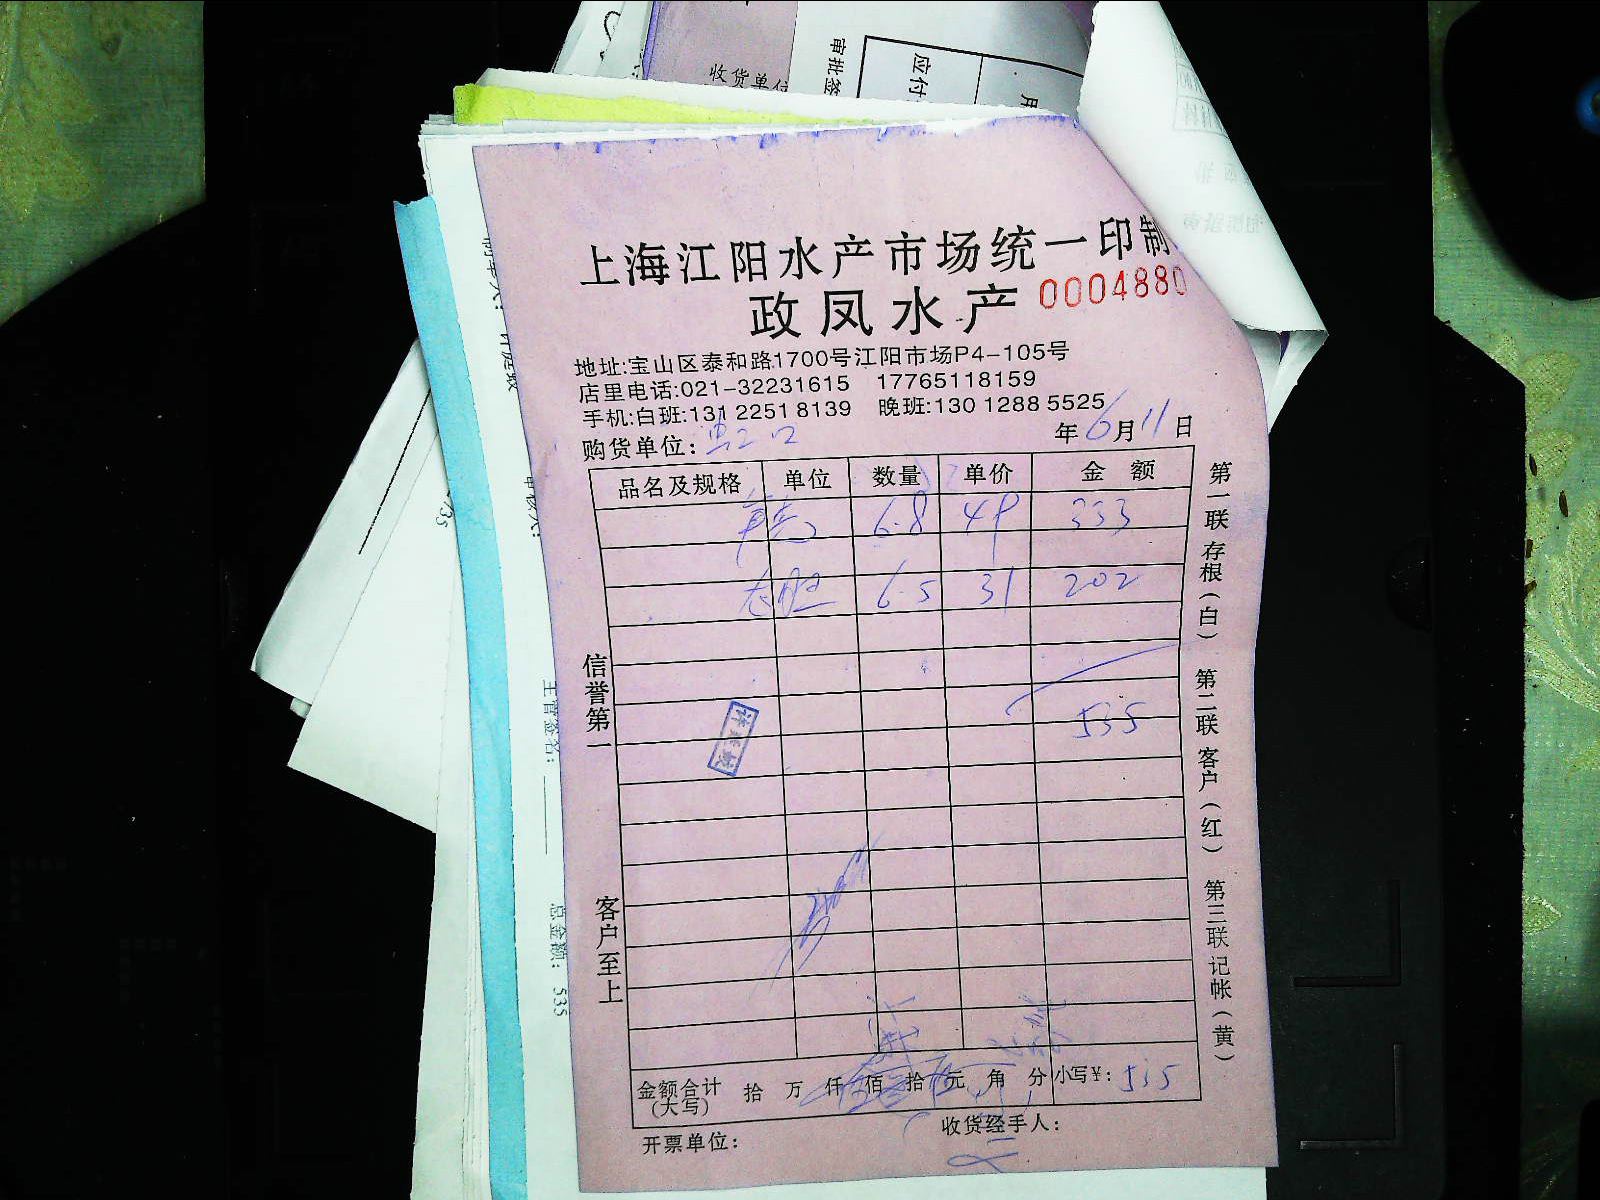 收货单位
审批签
应付
上海江阳水产市场统一印制
政凤水产 0004880
地址:宝山区泰和路1700号江阳市场P4-105号
店里电话:021-32231615 17765118159
手机:白班:131 2251 8139 晚班:130 1288 5525
购货单位: 虹口 年6月11日
品名及规格 单位 数量 单价 金额
6.8 49 333
6.5 31 202
535
信誉第一
客户至上
第一联存根(白)
第二联客户(红)
第三联记帐(黄)
金额合计(大写) 拾 万 仟 佰 拾 元 角 分 小写¥: 535
开票单位:
收货经手人:
主管签名:
总金额: 535